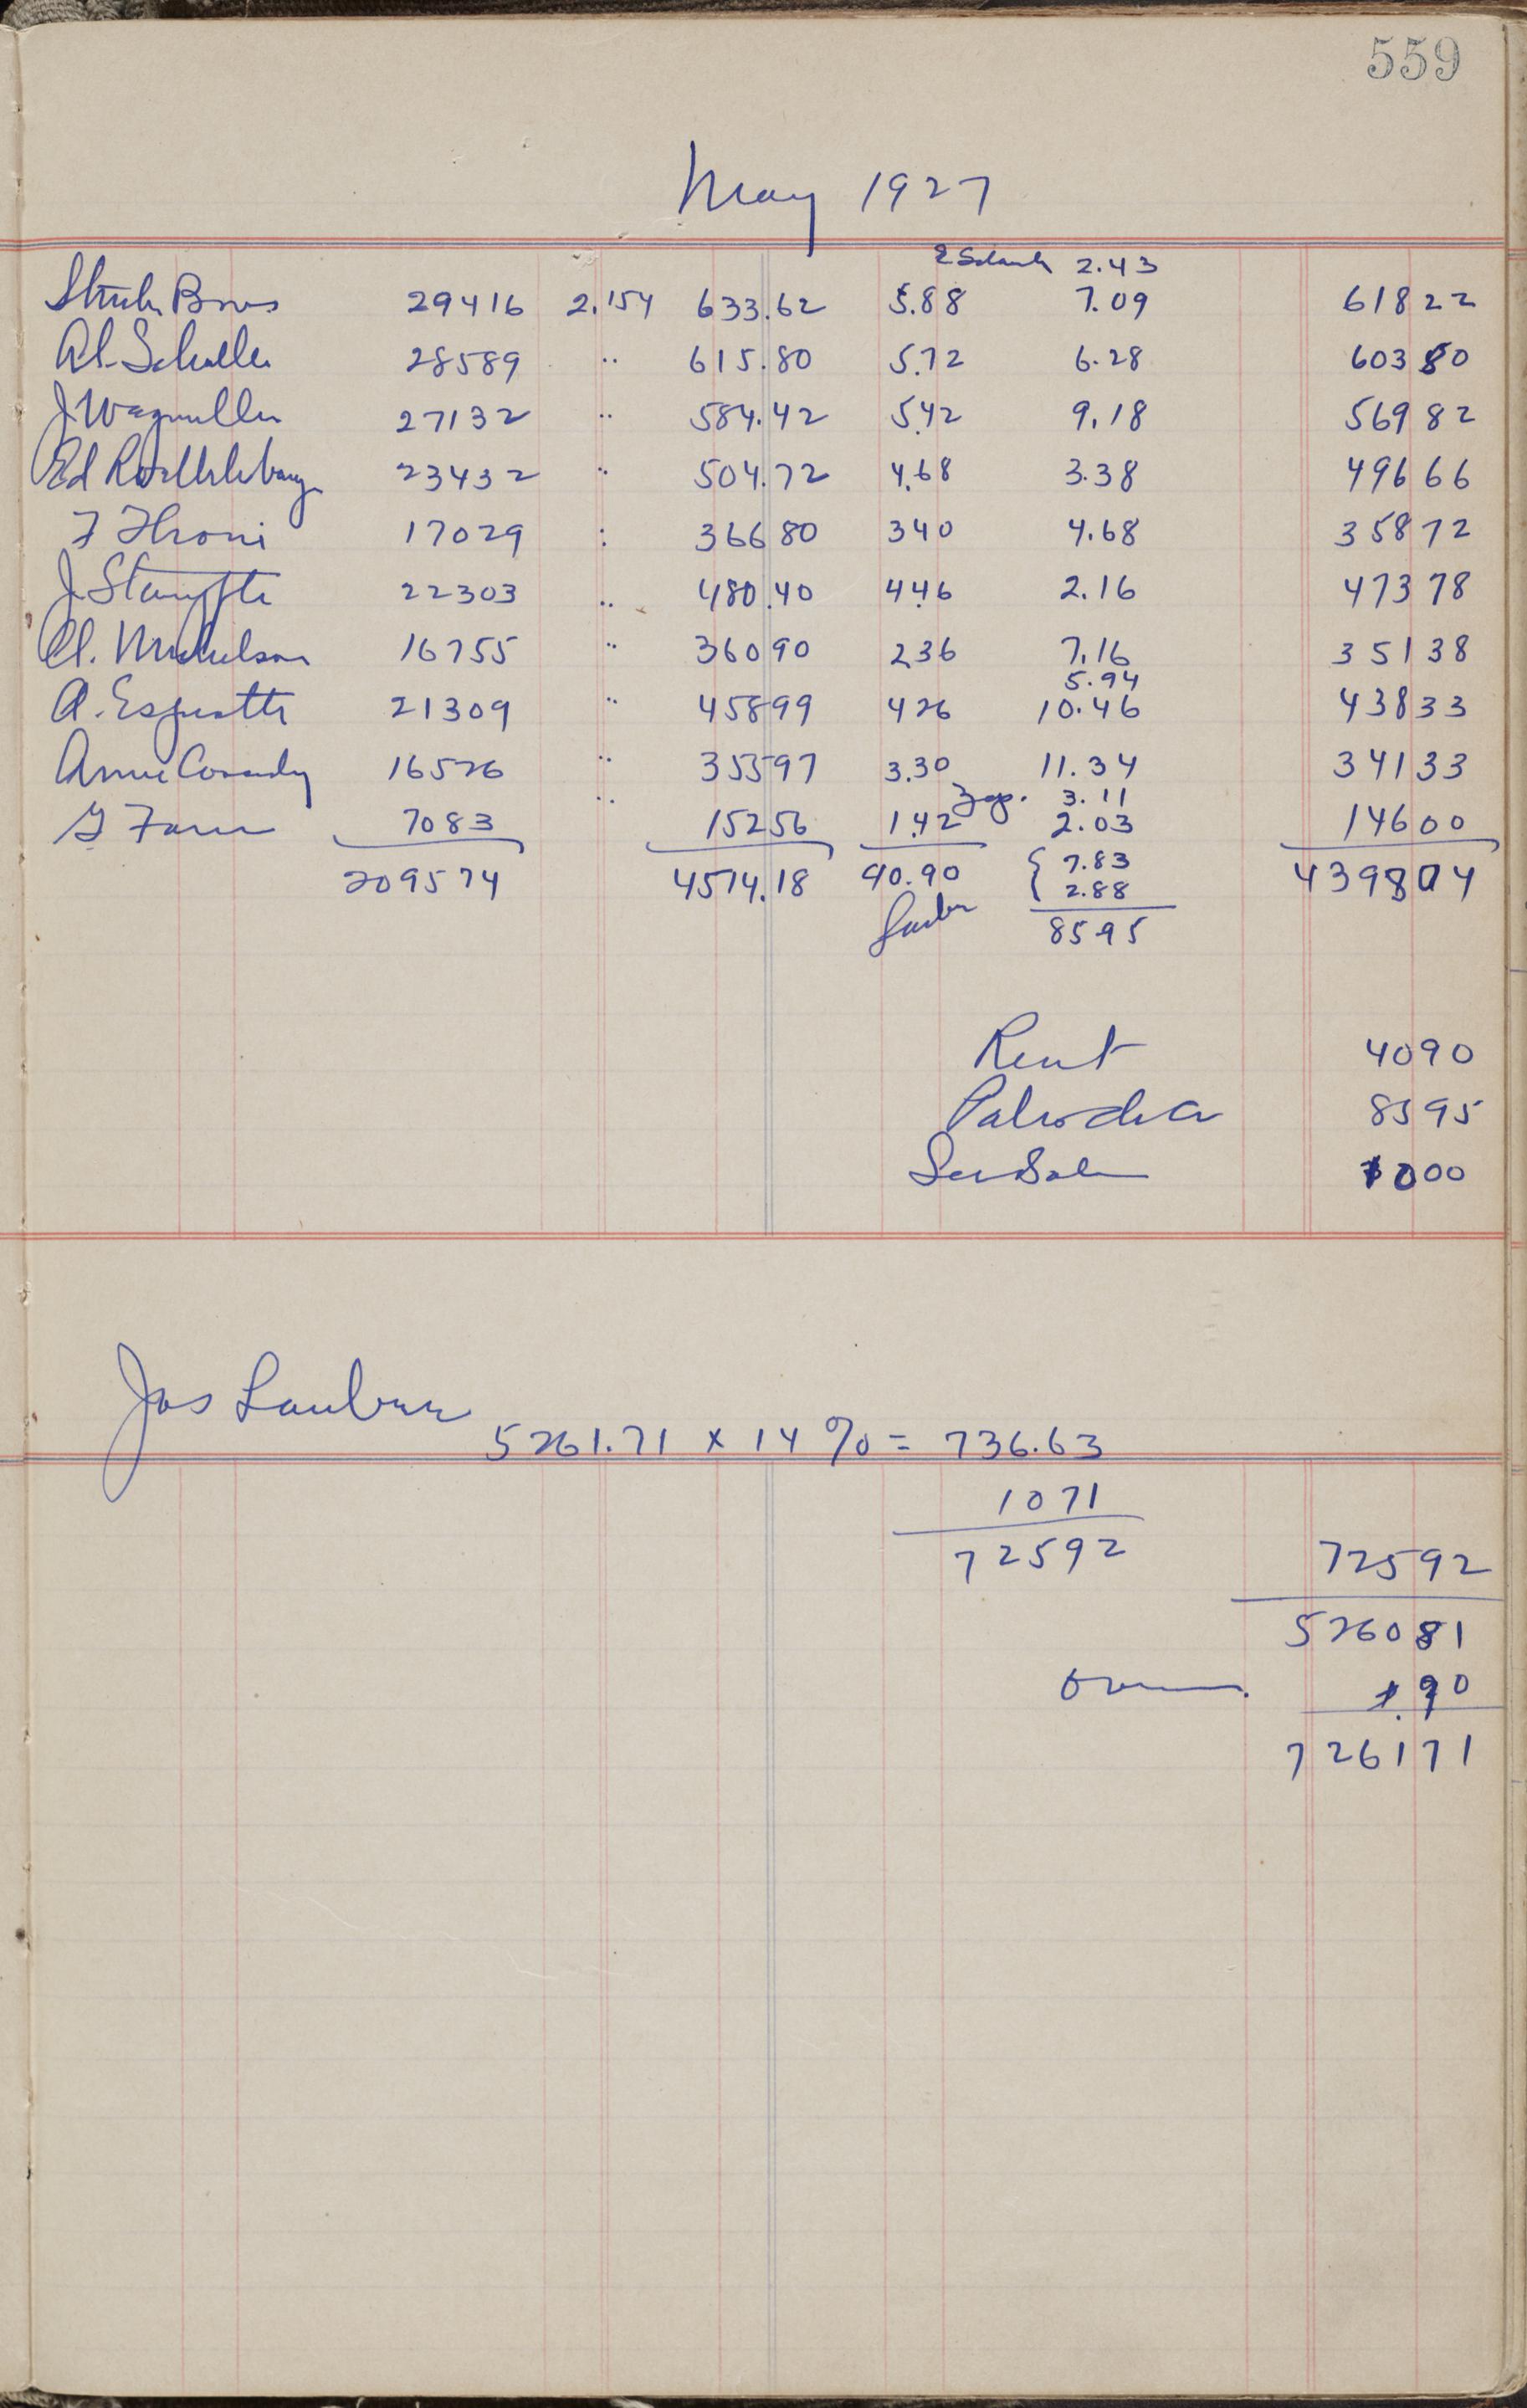 559
May 1927
2.43
Bros 29416 2.154 633.62 5.88 7.09 61822
Al. 28589 .. 615.80 5.72 6.28 60380
J Wagmuller 27132 .. 584.42 5.42 9.18 56982
Ed 23432 .. 504.72 4.68 3.38 49666
F 17029 : 36680 340 4.68 35872
J. Stampfli 22303 .. 480.40 446 2.16 47378
16755 .. 36090 236 7.16 35138
5.94
A. 21309 .. 45899 426 10.46 43833
Annie 16526 .. 35597 3.30 11.34 34133
.. 3.11
7083 15256 1.42 2.03 14600
{ 7.83
209574 4514.18 40.90 { 2.88 439804
8595
Rent 4090
8595
000
Jos
5261.71 x 14 % = 736.63
1071
72592 72592
526081
.90
726171